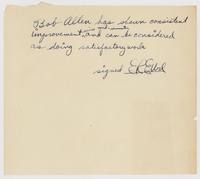 Bob Allen has shown consistent
improvement, and can be considered
as doing satisfactory work
signed